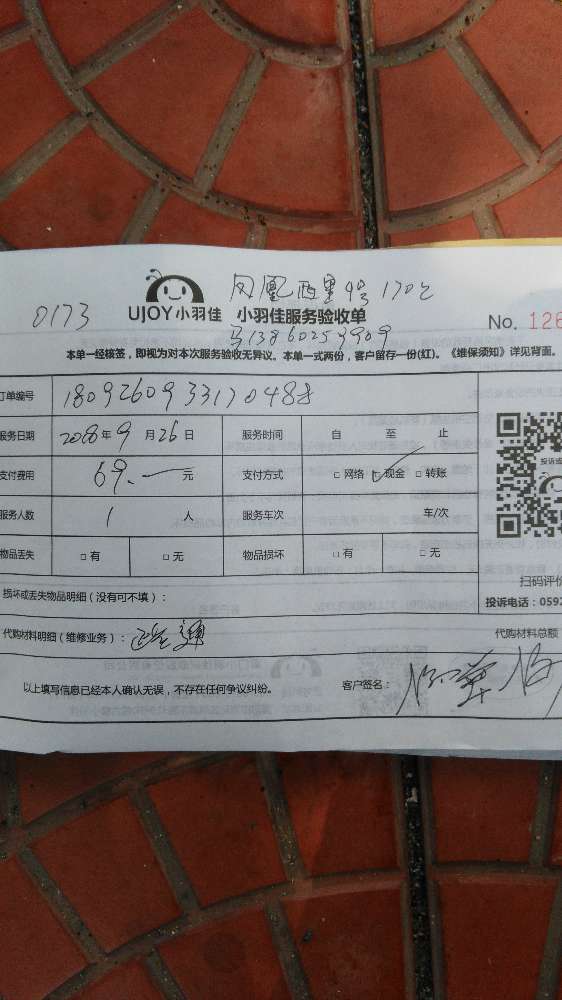 凤凰西里9号1702
0173
UJOY小羽佳 小羽佳服务验收单
No. 126
马13860253909
本单一经核签，即视为对本次服务验收无异议。本单一式两份，客户留存一份(红)。《维保须知》详见背面。
订单编号
服务日期 年9月26日 服务时间 自 至 止
支付费用 69.— 元 支付方式 □网络 ☑现金 □转账
服务人数 1 人 服务车次 车/次
物品丢失 □有 □无 物品损坏 □有 □无
扫码评价
损坏或丢失物品明细（没有可不填）：
投诉电话：0592
代购材料明细（维修业务）： 代购材料总额
以上填写信息已经本人确认无误，不存在任何争议纠纷。 客户签名：